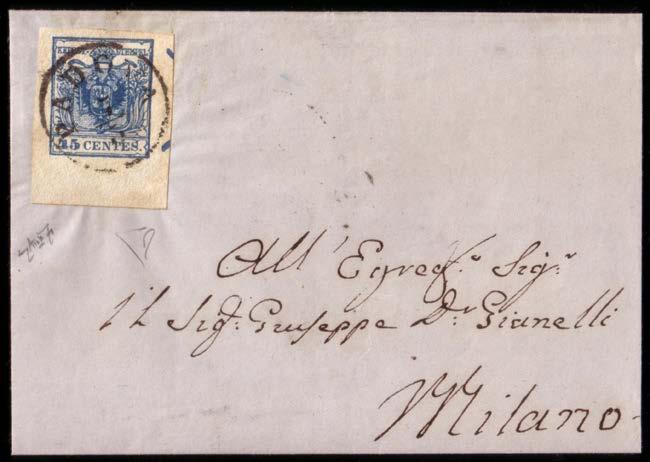 PADOVA
45 CENTES.
All' Egreg.º Sig.r
il Sig.r Giuseppe D.r Gianelli
Milano